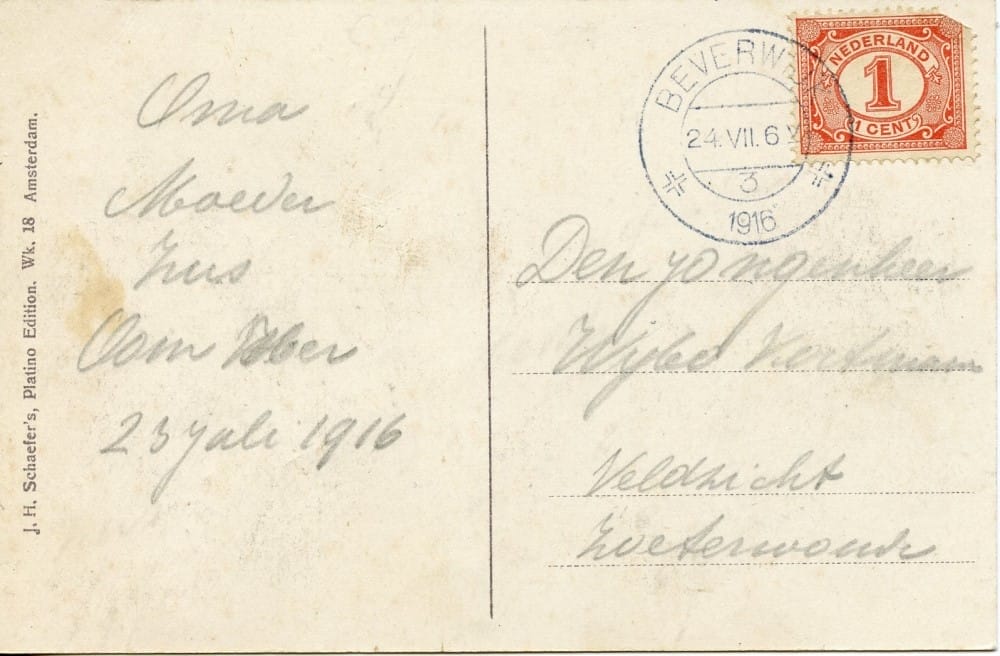 J. H. Schaefer's, Platino Edition. Wk. 18 Amsterdam.
Oma
Moeder
Zus
Oom
23 Juli 1916
BEVERWIJK
24. VII. 6
3
1916
NEDERLAND
1
1 CENT
Den jongenheer
Wybo
Veldzicht
Zoeterwoude